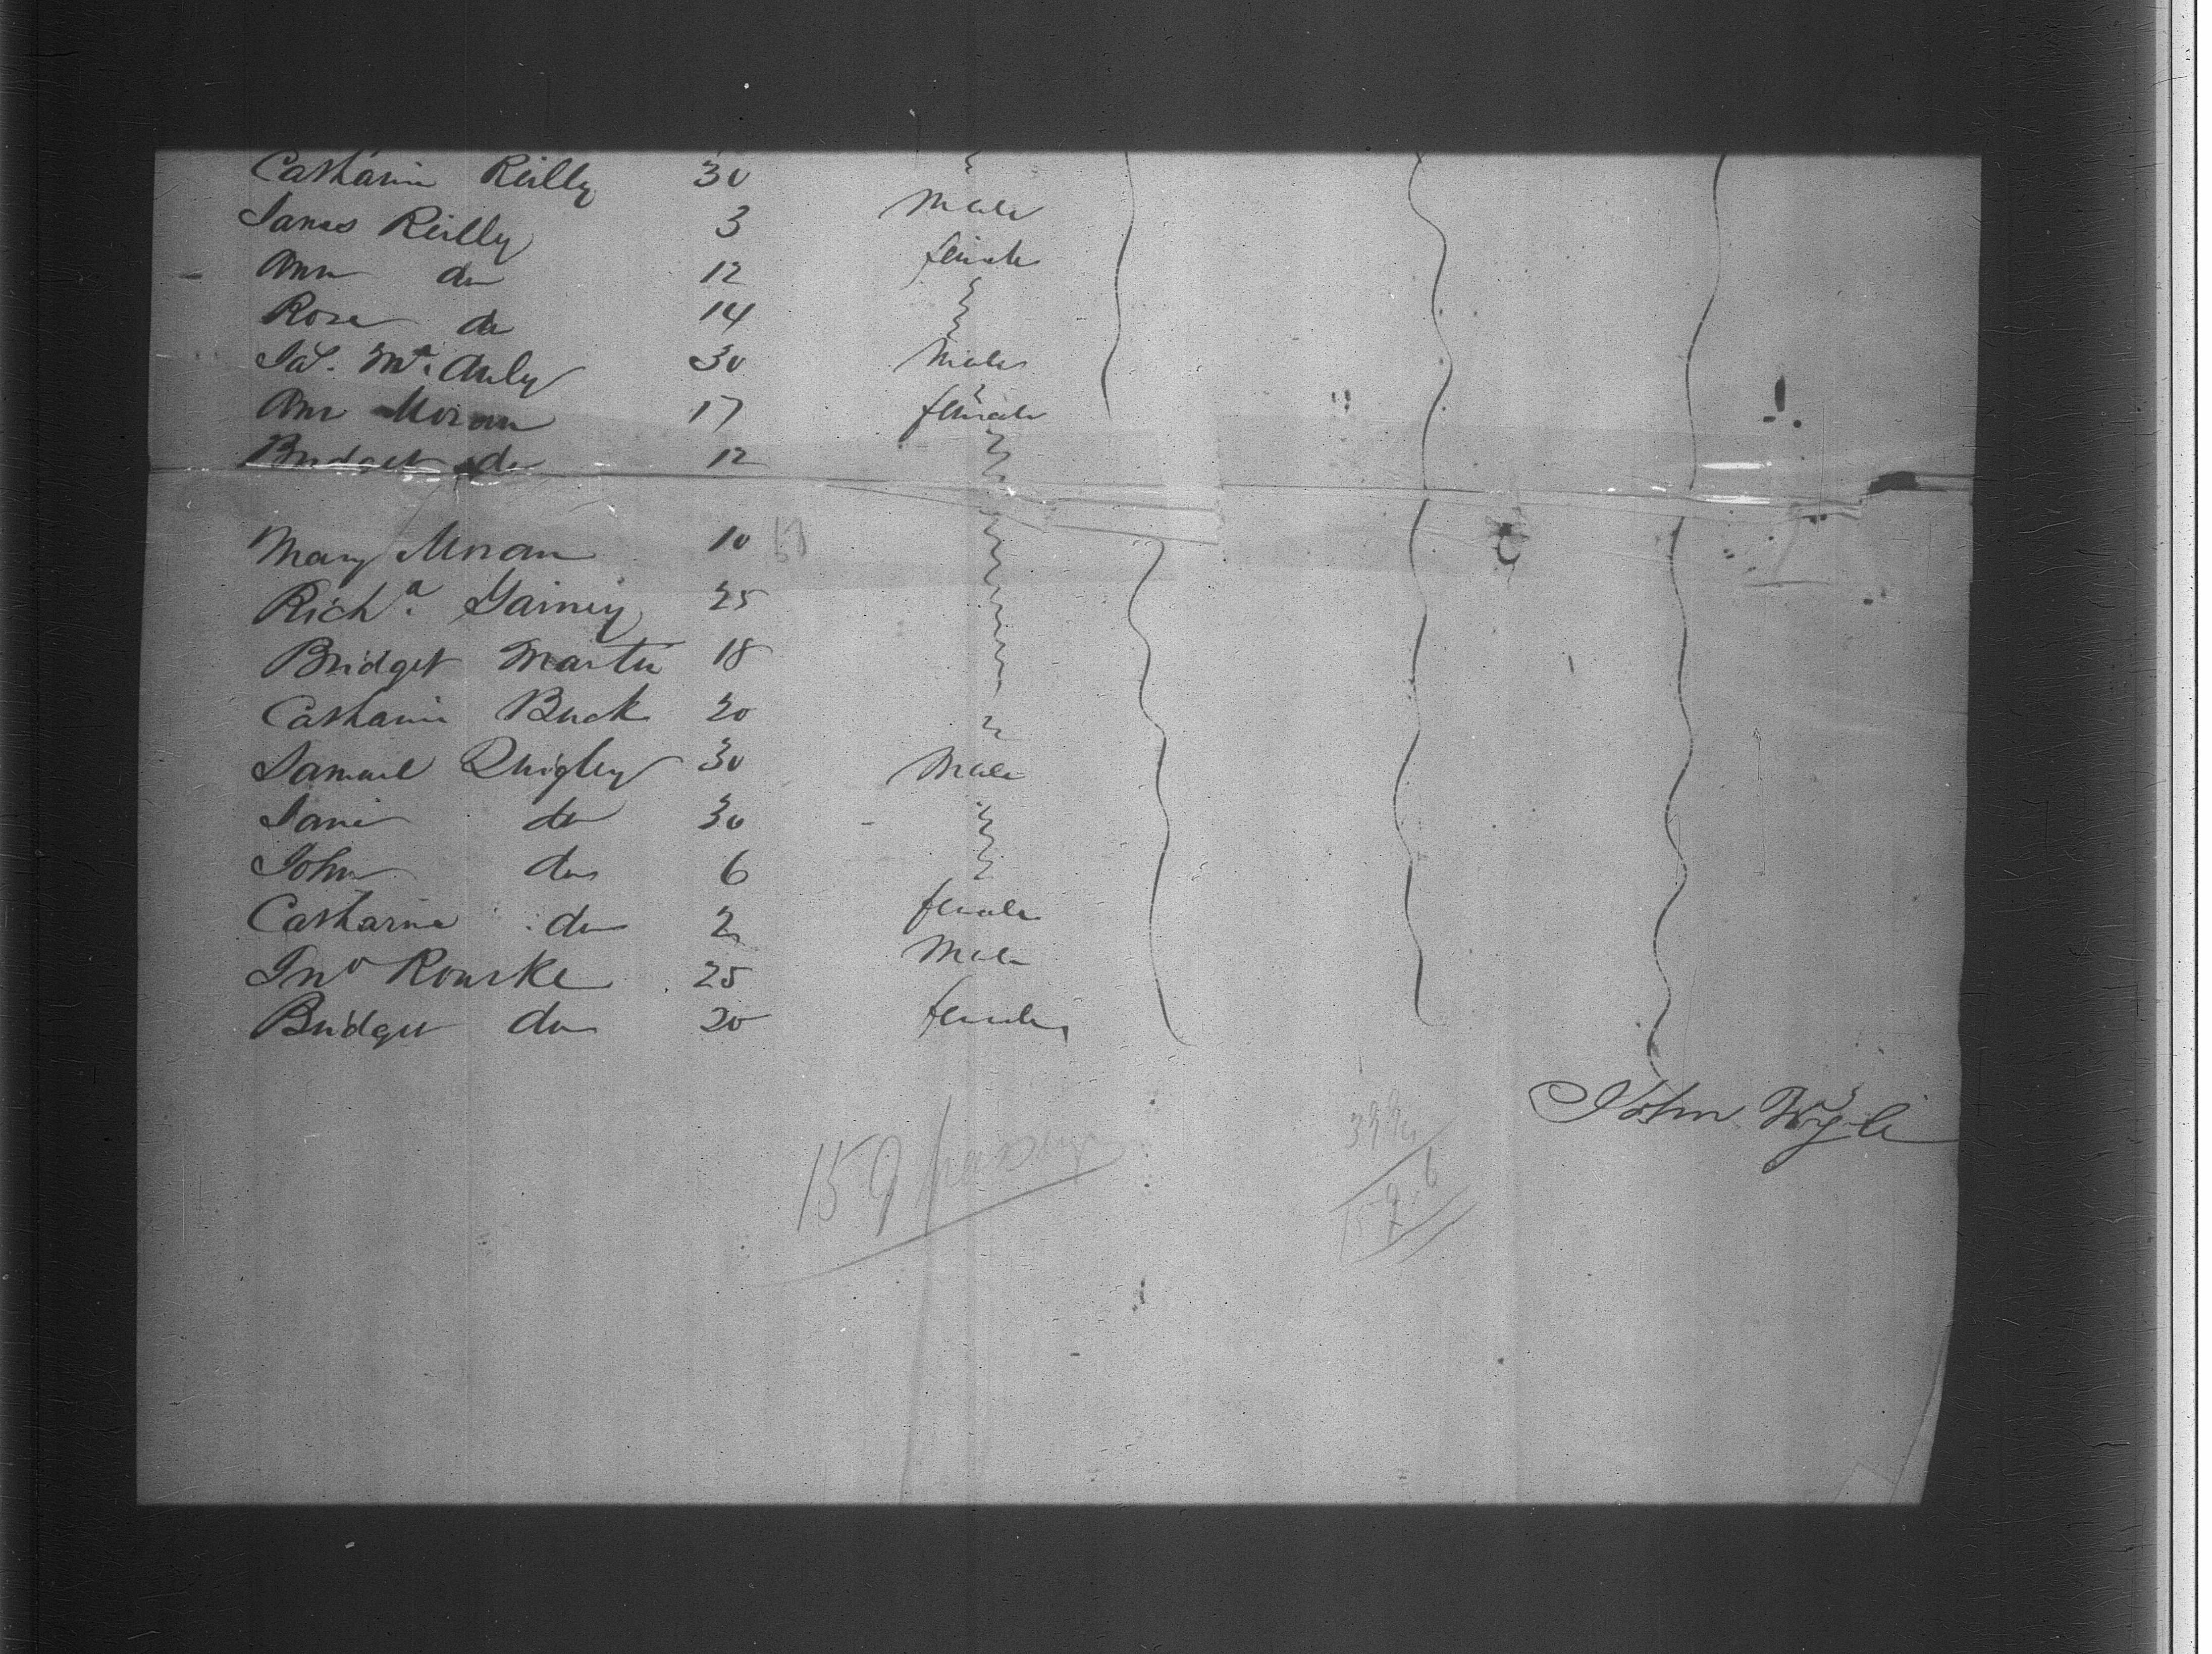 Catharin Reilly 30
James Reilly 3 Male
Ann do 12 female
Rose do 14
Jas. Mc. Auly 30 Male
Ann Moran 17 female
Bridget do 12
Mary Moran 10
Richd. Gainey 25
Bridget Martin 18
Catharin Buck 20
Samuel Quigley 30 Male
Jane do 30
John do 6
Catharine do 2 female
Jno Rourke 25 Male
Bridget do 20 female
John Wylie
159 passrs